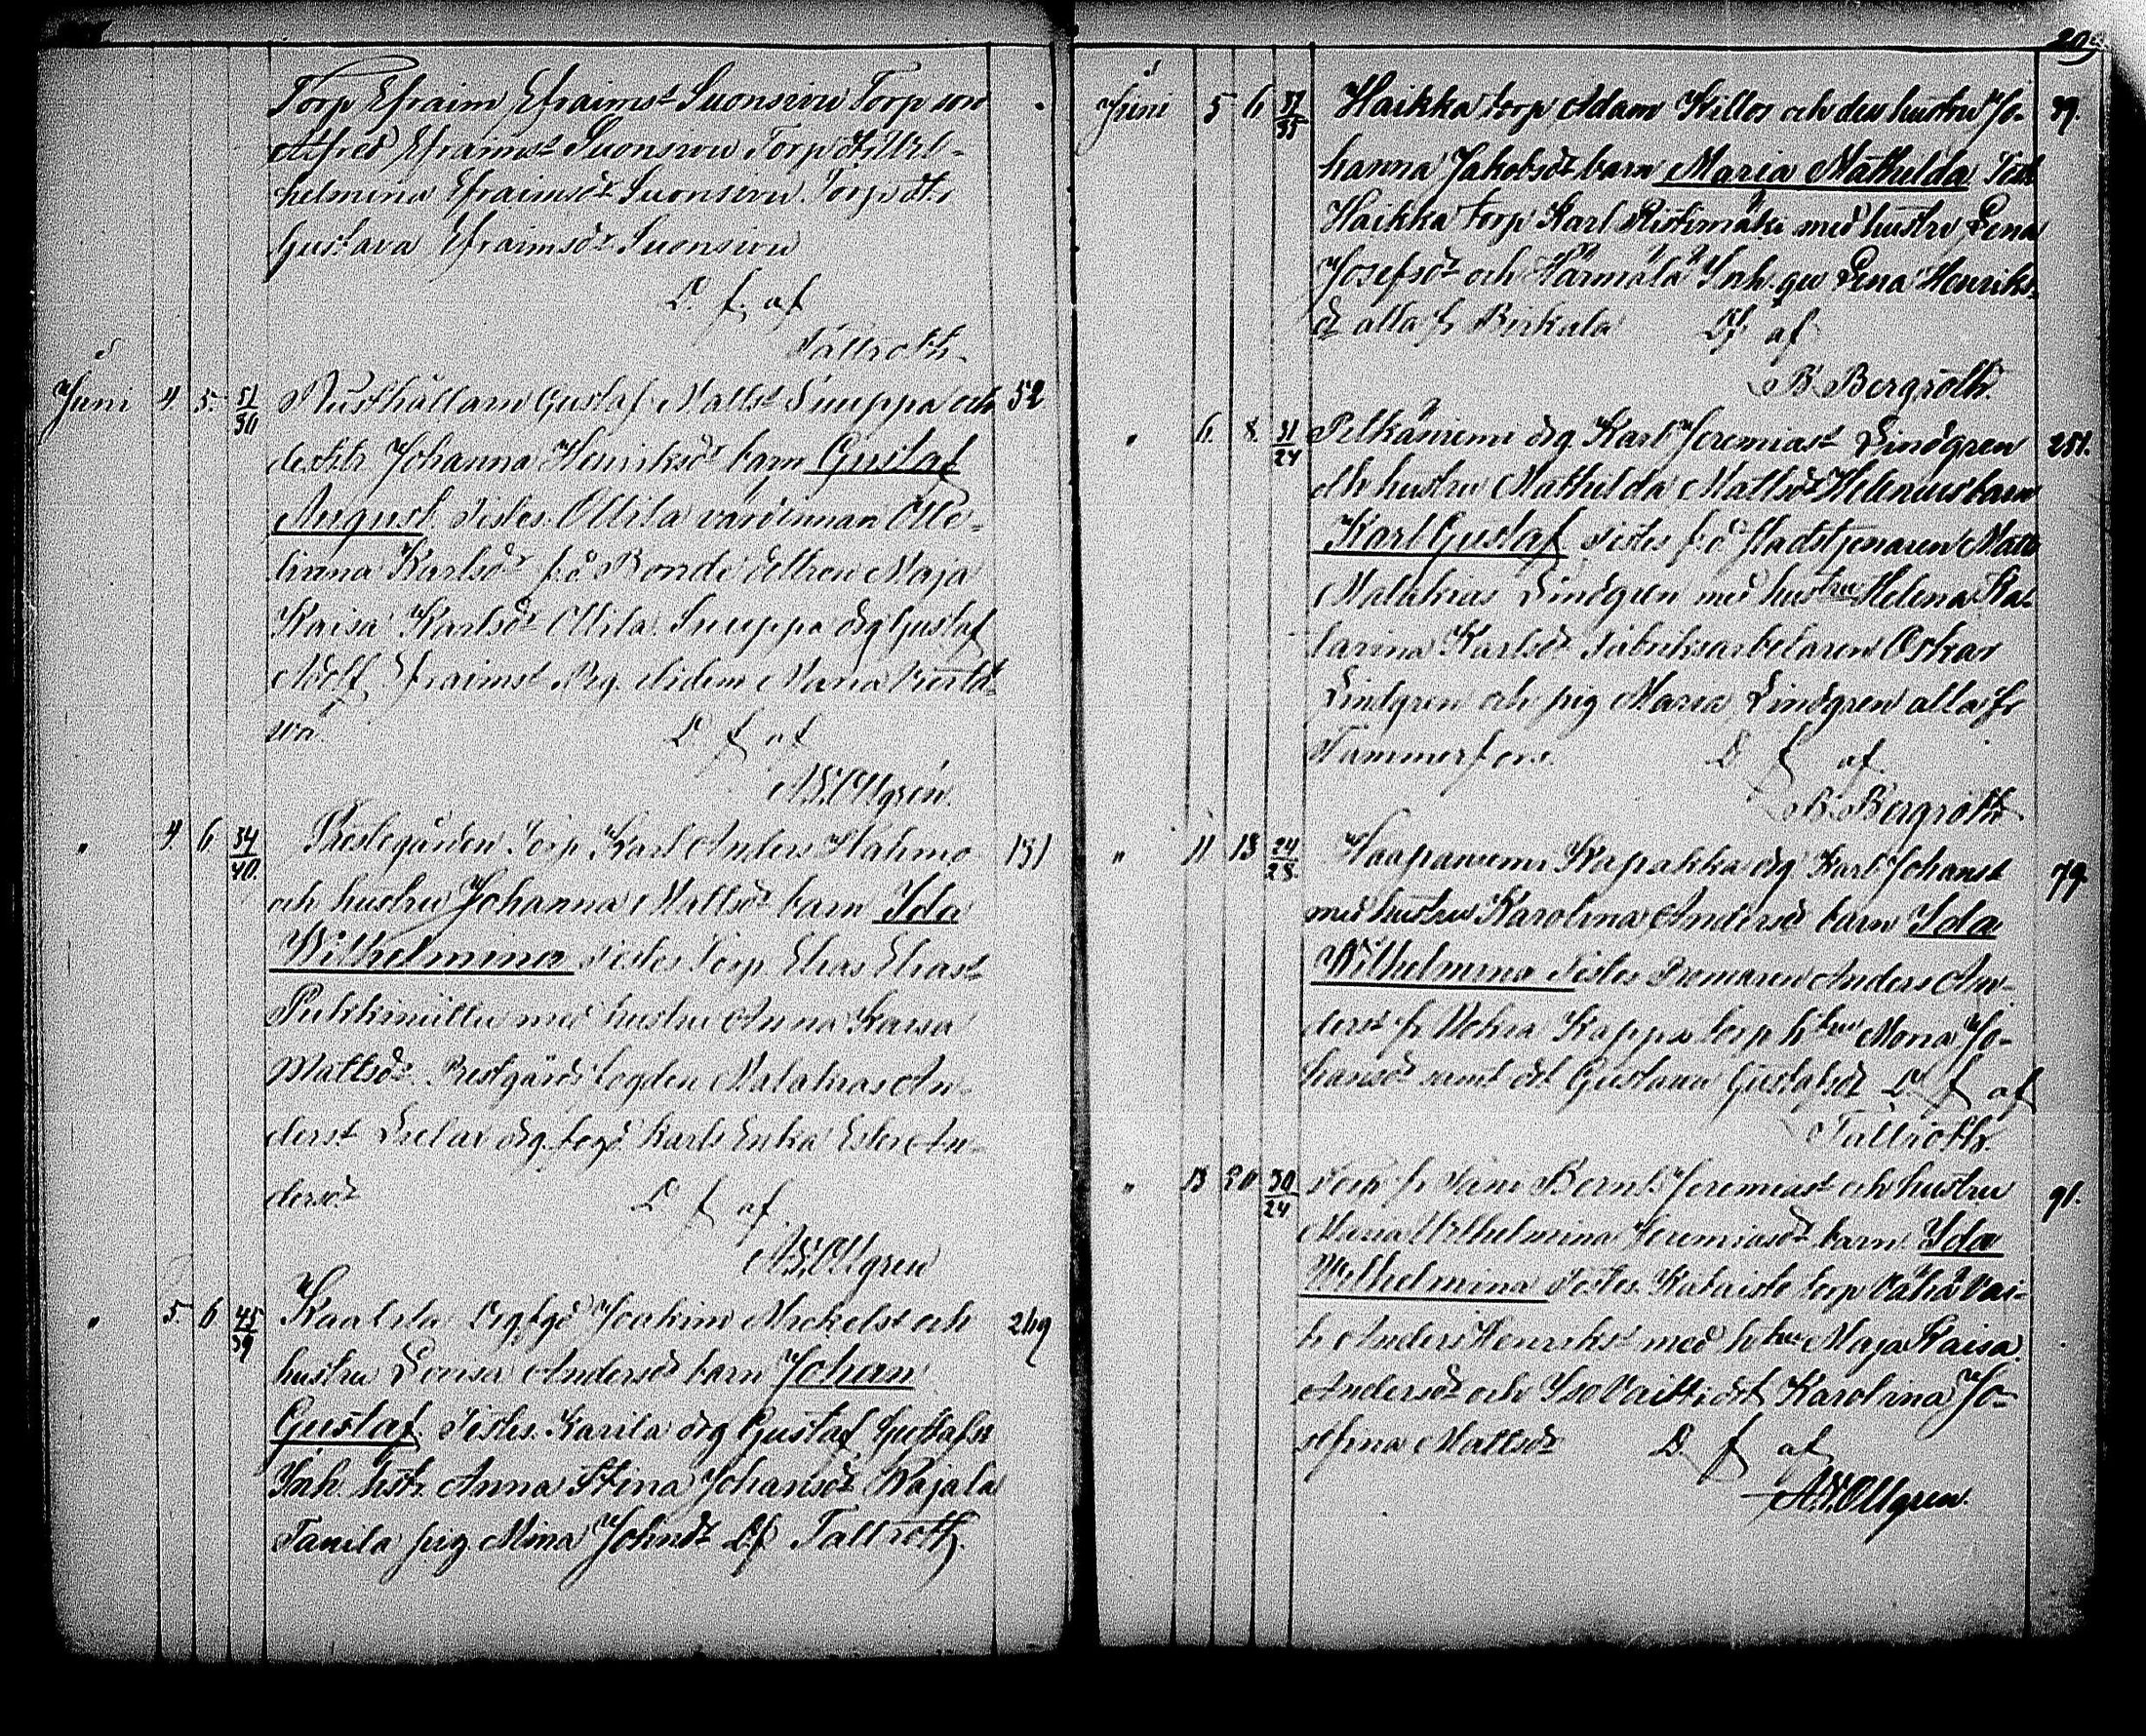 Torp Efraim Efraimst Suonsivu Torp son
Alfred Efraimst Suonsivu Torp dtr Wil-
helmina Efraimsdr Suonsivu Torp dtr
Gustava Efraimsdr Suonsivu
D. f. af
Tallroth
Juni 4. 5. 31/30 Rusthållaren Gustaf Mattst Suuppa och 52
dess h. Johanna Henriksdr barn Gustaf
August Testes Ollila värdinnan Otte-
liana Karlsdr f.d. Bonde dottren Maja
Kaisa Karlsdr Ollila. Suuppa drg Gustaf
Adolf Efraimst Pig. ibidem Maria
D f af
A. W. Ollgrén.
" 4. 6 34/40 Prestegården Torp Karl Anders Hahmo 131
och hustru Johanna Mattsdr barn Ida
Wilhelmina Testes Torp Elias Eliast
med hustru Anna Kaisa
Mattsdr. Prestgårds fogden Malakias An-
derst drg fogd Karls Enka Ester An-
dersdr D f af
A. W. Ollgren
" 5. 6 45/39 Kaalila Drg fgd Joakim Mickelst och 249
hustru Lovisa Andersdr barn Johan
Gustaf. Testes. Karila drg Gustaf Gustafsn
Inh. hstr Anna Stina Johansdr Rajala
Tanila pig Mina Johnsdr Df Tallroth.
209
Juni 5 6 37/35 Haikka torp Adam Killos och dess hustru Jo- 39.
hanna Jakobsdr barn Maria Mathilda Test
Haikka torp Karl Ristimäki med hustru Lena
Josefsdr och Härmälä Inh. qv Lena Henriks-
dr alla fr Birkala Df af
B. Bergroth.
" 6. 8. 31/24 Pelkäniemi drg Karl Jeremiast Lindgren 251.
och hustru Mathilda Mattsdr Helenius barn
Karl Gustaf Testes f.d. Stadstjenaren Mats
Malakias Lindgren med hustru Helena Ka-
tarina Karlsdr fabriksarbetaren Oskar
Lindgren och pig Maria Lindgren alla fr
Tammerfors. D f af
B. Bergroth
" 11 13 24/28 Haapaniemi Kapakka drg Karl Johanst 79.
med hustru Karolina Andersdr barn Ida
Wilhelmina Testes Dromaren Anders An-
derst fr Wehka Kappa torp hstru Maria Jo-
hansdr samt dtr Gustava Gustafsdr D f af
Tallroth.
" 13 20 30/24 Torp fr Bernt Jeremiast och hustru 91.
Maria Wilhelmina Jeremiasdr barn Ida
Wilhelmina Testes. Kataisto torp Vähä Vai-
h Anders Henrikst med hstru Maja Kaisa
Andersdr och Iso Vaitti dtr Karolina Jo-
sefina Mattsdr D f af
A. W. Ollgren.